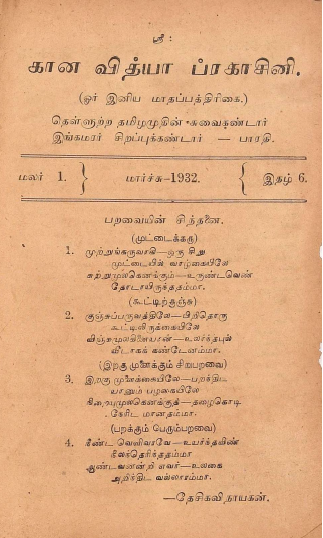 ஸ்ரீ :
கான வித்யா ப்ரகாசினி.
(ஓர் இனிய மாதப்பத்திரிகை.)
தெள்ளுற்ற தமிழமுதின் சுவைகண்டார்
இங்கமரர் சிறப்புக்கண்டார் — பாரதி.
மலர் 1. } மார்ச்சு-1932. { இதழ் 6.
பறவையின் சிந்தனை.
(முட்டைக்கரு)
1. முற்றுங்கருவாகி—ஒரு சிறு
முட்டையில் வாழ்கையிலே
சுற்றுமுலகெனக்கும்—உருண்டவெண்
தோடாயிருந்ததம்மா.
(கூட்டிற்குஞ்சு)
2. குஞ்சுப்பருவத்திலே—பிறிதொரு
கூட்டிலிருக்கையிலே
விஞ்சுமுலகினையான்—உலர்ந்தபுல்
வீடாகக் கண்டேனம்மா.
(இறகு முளைக்கும் சிறுபறவை)
3. இறகு முளைக்கையிலே—பறந்திட
யானும் பழகையிலே
நிறையுமுலகெனக்கு—தழைகொடி
நேரிட மானதம்மா.
(பறக்கும் பெரும்பறவை)
4. நீண்ட வெளிவரவே—உயர்ந்தவிண்
நீலந்தெரிந்ததம்மா
ஆண்டவனன்றி எவர்—உலகை
அறிந்திட வல்லாரம்மா.
—தேசிகவிநாயகன்.